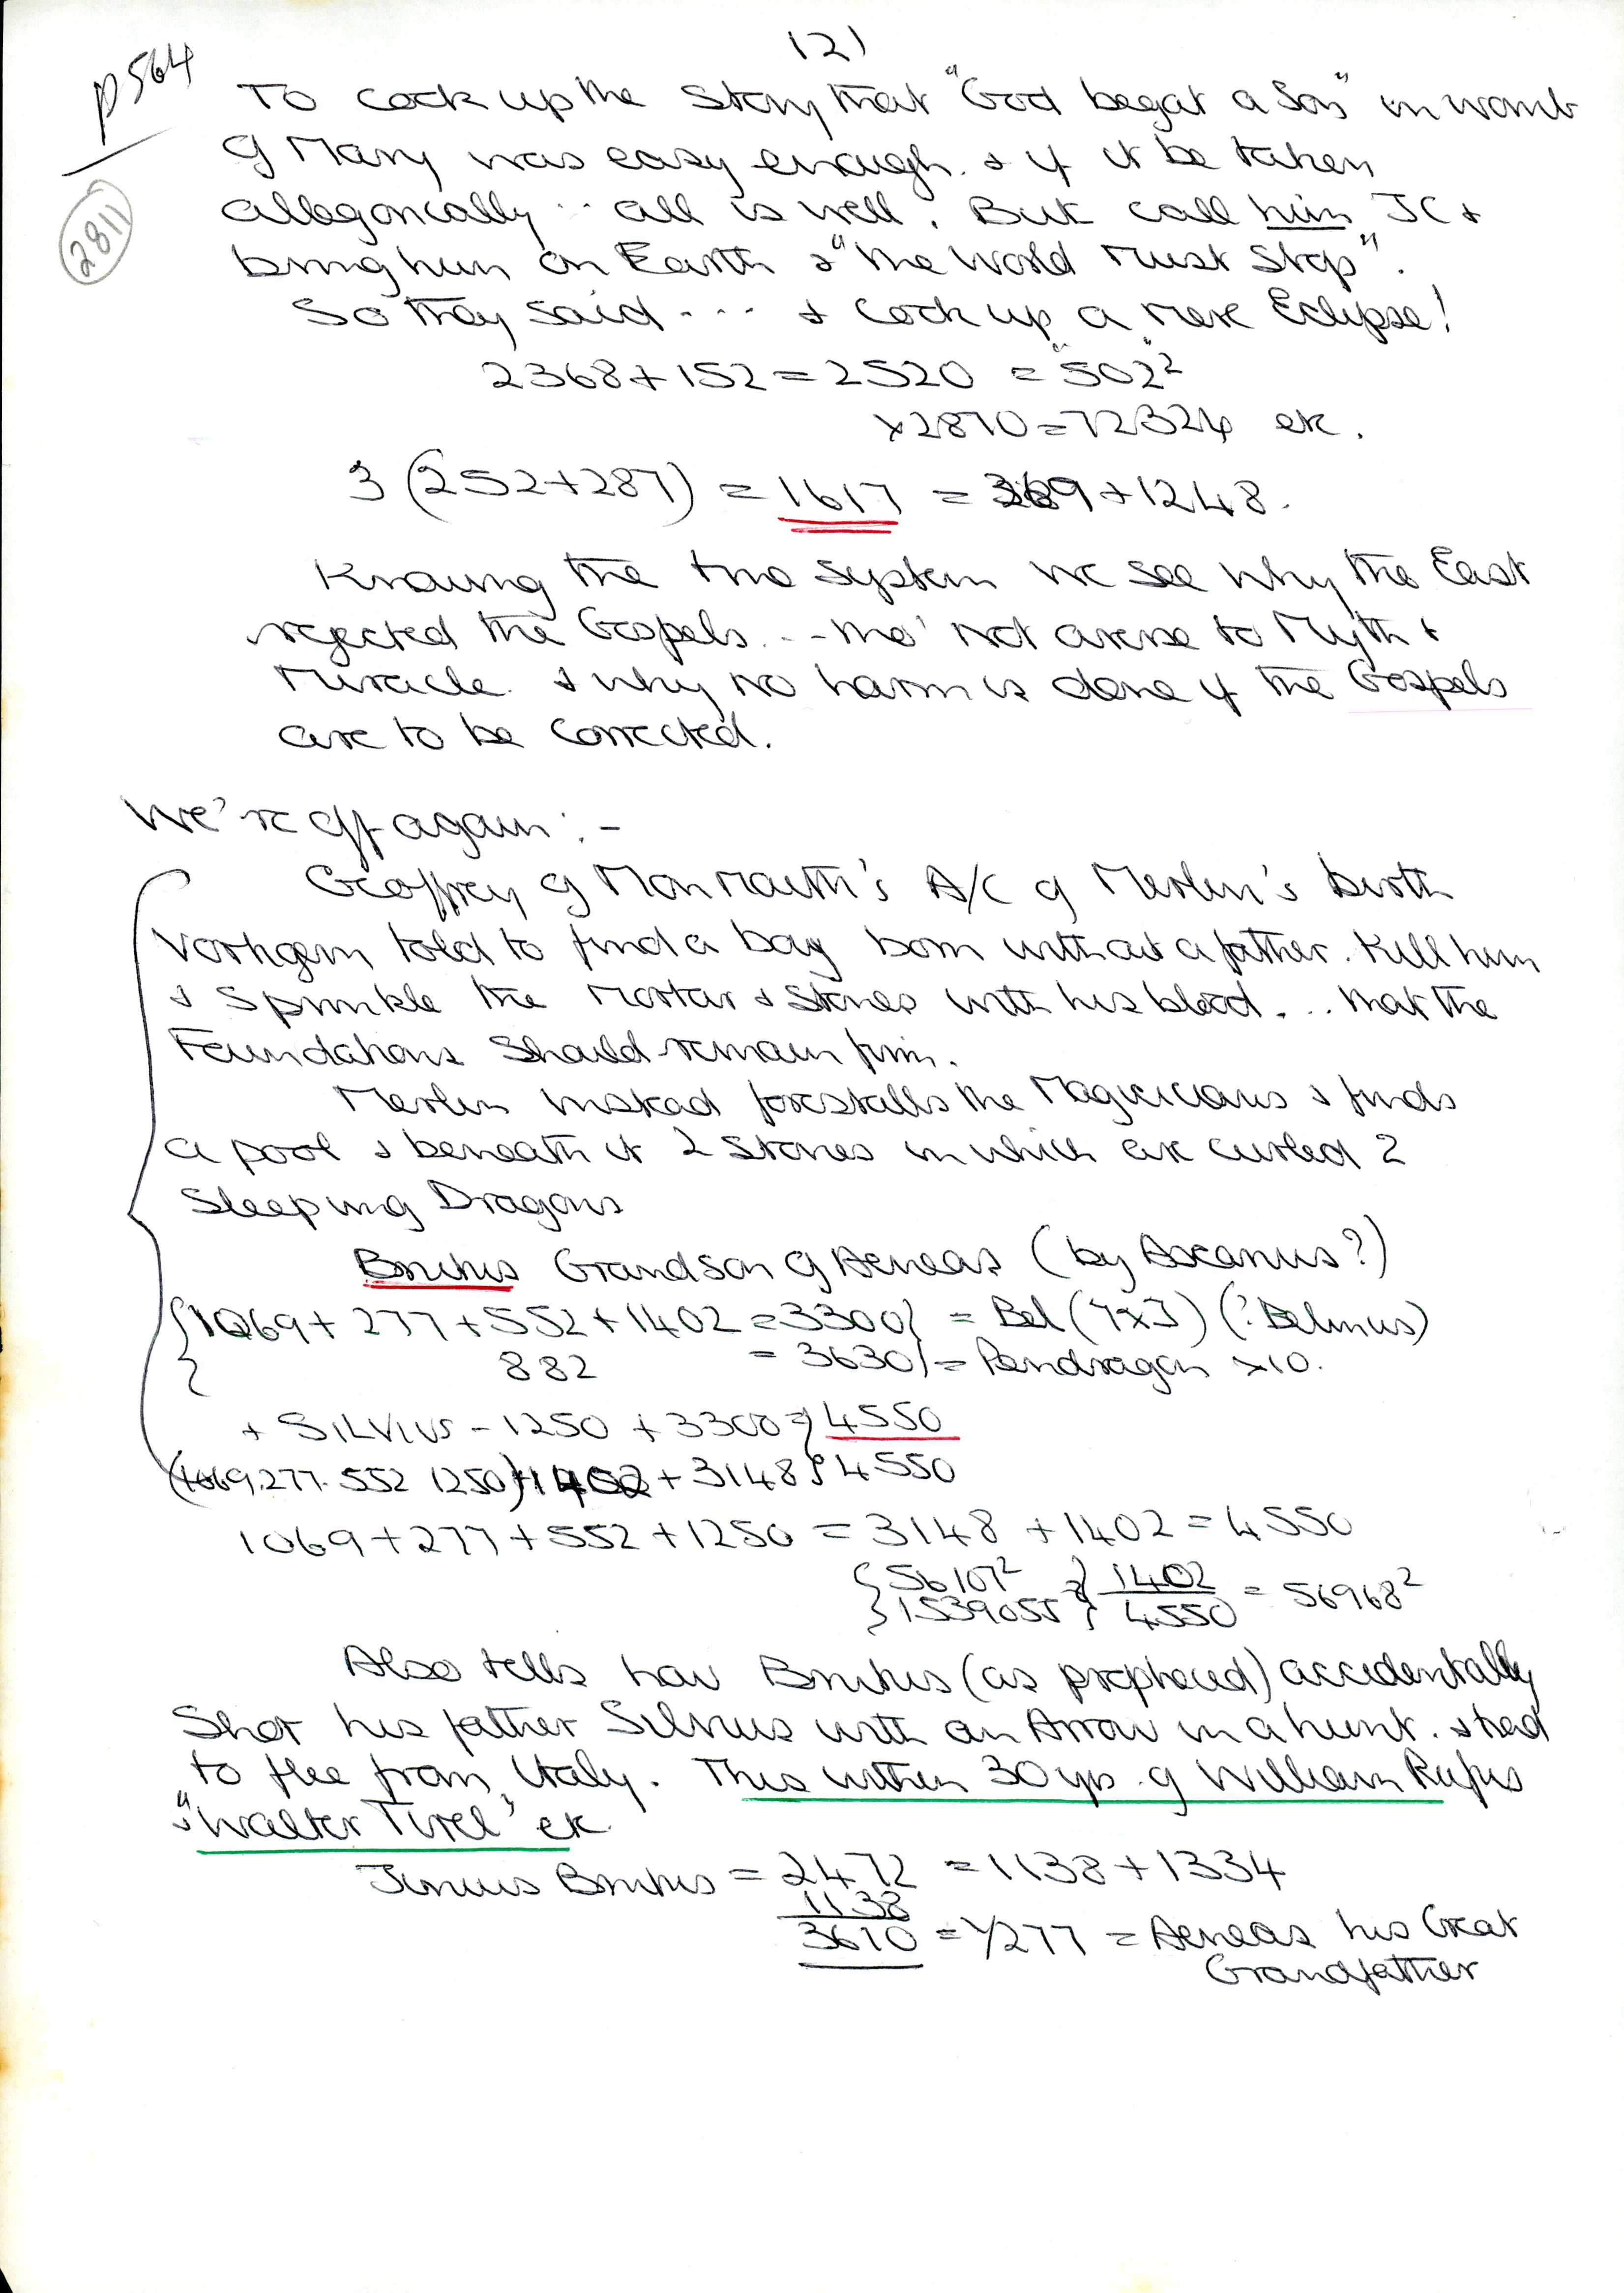 (2)
p564
2811
To cook up the story that "God begat a Son" in womb
of Mary was easy enough. & if it be taken
allegorically .. all is well. But call him JC &
bring him on Earth & "the World Must Stop".
So they said ... & cook up a mere Eclipse!
2368 + 152 = 2520 = "502"²
x2870 = 72324 etc.
3 (252 + 287) = 1617 = 369 + 1248.
Knowing the two system we see why the East
rejected the Gospels. .. tho' not averse to Myth &
Miracle. & why no harm is done if the Gospels
are to be corrected.
We're off again :-
Geoffrey of Monmouth's A/C of Merlin's birth
Vortigern told to find a boy born without a father. Kill him
& sprinkle the Mortar & Stones with his blood. .. that the
Foundations should remain firm.
Merlin instead forestalls the Magicians & finds
a pool & beneath it 2 stones in which are curled 2
Sleeping Dragons
Brutus Grandson of Aeneas (by Ascanus?)
{1069 + 277 + 552 + 1402 = 3300} = Bel (7x3) (? Belinus)
882 = 3630} = Pendragon x10.
+ SILVIUS - 1250 + 3300 =} 4550
(1069.277.552 1250) + 1402 + 3148} 4550
1069 + 277 + 552 + 1250 = 3148 + 1402 = 4550
{56107² } 1402 = 56968²
{1539055 } 4550
Also tells how Brutus (as prophecied) accidentally
Shot his father Silvius with an Arrow in a hunt. & had
to flee from Italy. This within 30 yrs. of William Rufus
& "Walter Tirel" etc.
Junius Brutus = 2472 = 1138 + 1334
1138
3610 = 1/277 = Aeneas his Great
Grandfather